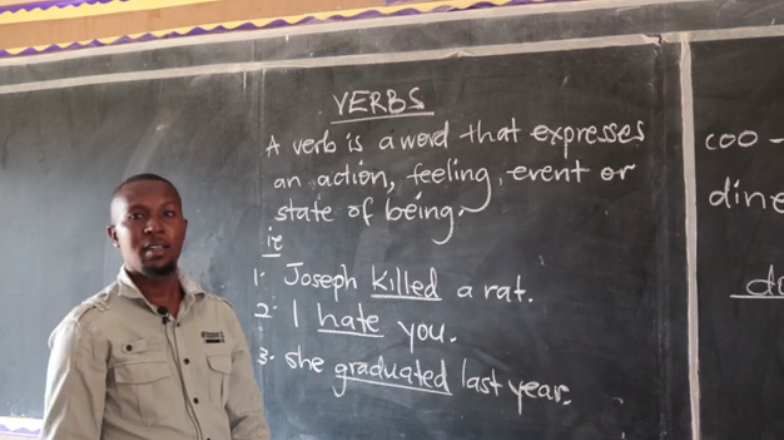 VERBS
A verb is a word that expresses
an action, feeling, event or
state of being.
ie
1. Joseph killed a rat.
2. I hate you.
3. she graduated last year.
coo -
dine
do